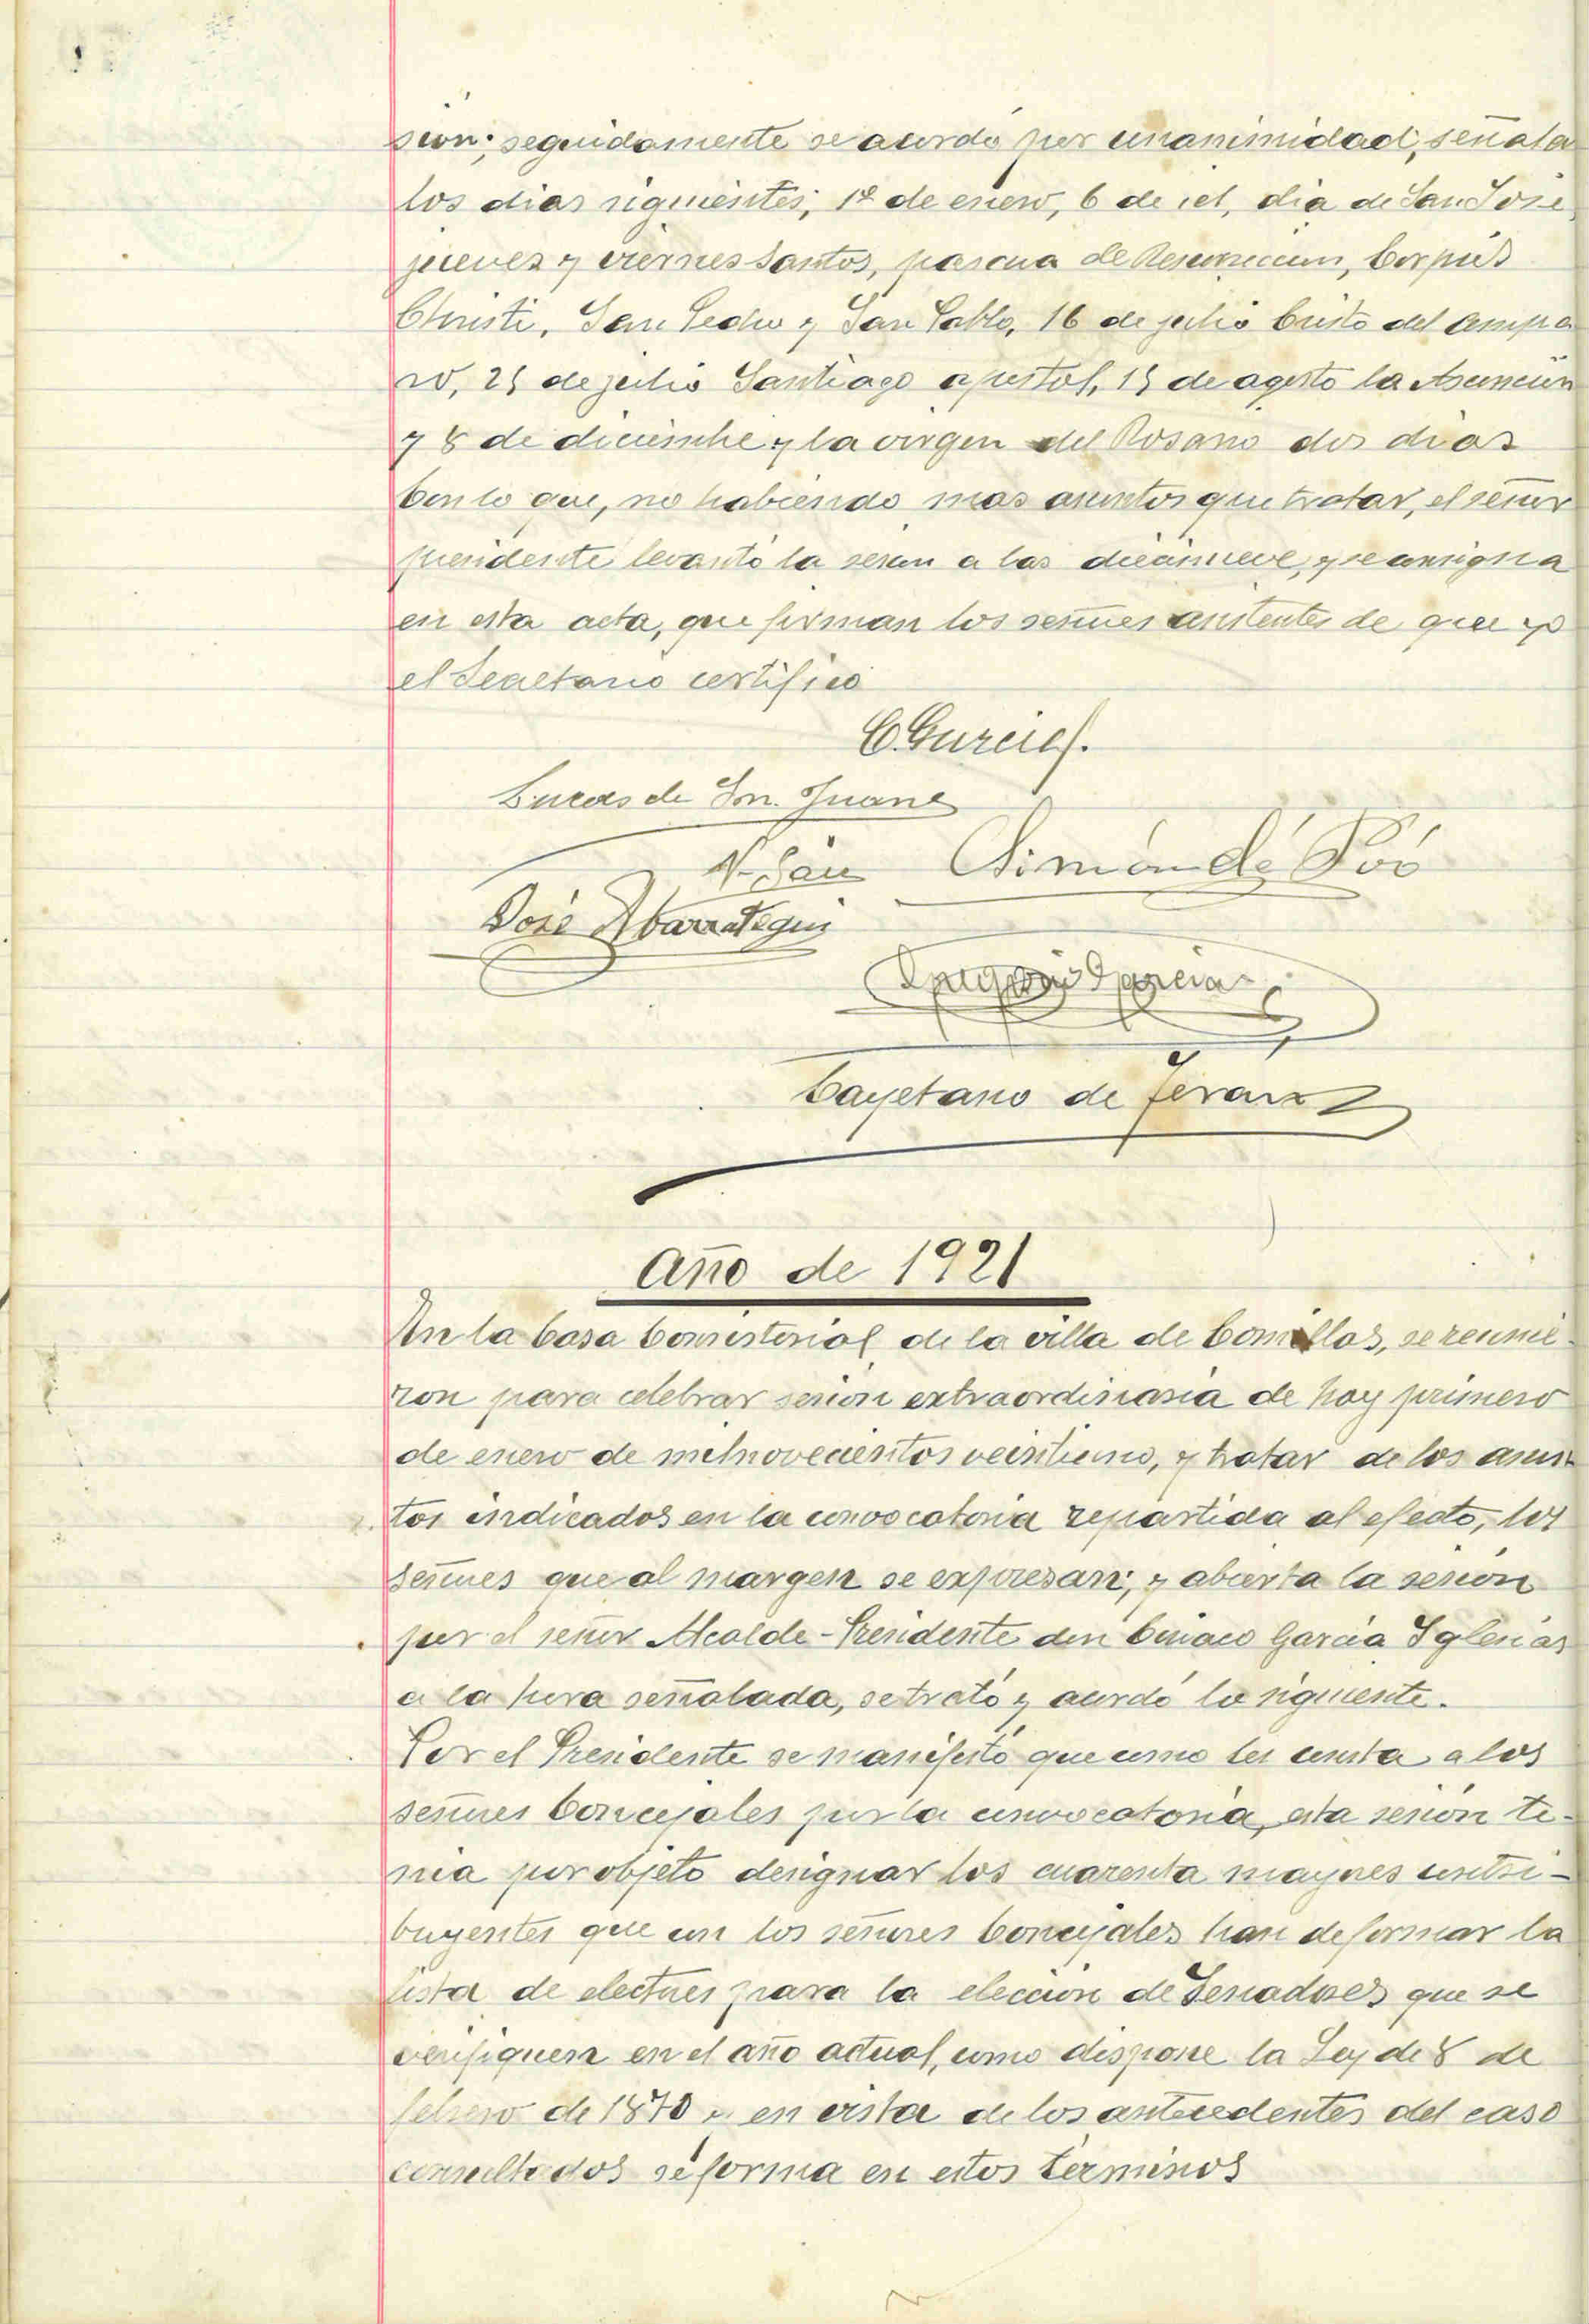 sion; seguidamente se acordó por unanimidad, señala
los dias siguientes; 1º de enero, 6 de id, dia de San José
jueves y viernes Santos, pascua de Resurreccion, Corpus
Christi, San Pedro y San Pablo, 16 de julio Cristo del Ampa
ro, 25 de julio Santiago apostol, 15 de agosto la Asuncion
y 8 de diciembre y la virgen del Rosario dos dias
Con lo que, no habiendo mas asuntos que tratar, el señor
presidente levantó la sesion a las diecinueve, y se consigna
en esta acta, que firman los señores asistentes de que yo
el Secretario certifico
C. Garcia.
Lucas de Sn. Juan
N. San Simón de Poó
José Abarrategui
Gregorio Garcia
Cayetano de Teran
Año de 1921
En la Casa Consistorial de la villa de Comillas, se reunie-
ron para celebrar sesion extraordinaria de hoy primero
de enero de milnovecientos veintiuno, y tratar de los asun
tos indicados en la convocatoria repartida al efecto, los
señores que al margen se expresan; y abierta la sesión
por el señor Alcalde-Presidente don Ciriaco Garcia Iglesias
a la hora señalada, se trató y acordó lo siguiente.
Por el Presidente se manifestó que como les consta a los
señores Concejales por la convocatoria, esta sesión te-
nia por objeto designar los cuarenta mayores contri-
buyentes que con los señores Concejales han de formar la
lista de electores para la elección de Senadores que se
verifiquen en el año actual, como dispone la Ley de 8 de
febrero de 1870 y en vista de los antecedentes del caso
consultados se forma en estos terminos